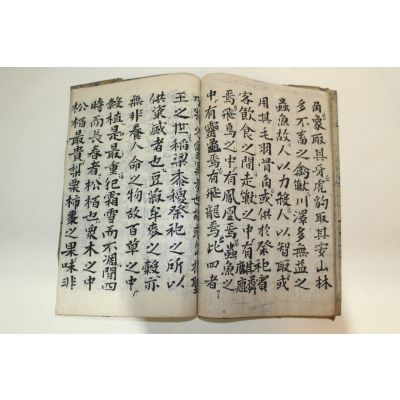 角象取其牙虎豹取其山林
多不畜之禽獸川澤多無益之
蟲魚故人以力殺人以智取或
用其毛羽骨角或供於祭祀賓
客飲食之間走獸之中有麒麟
焉飛鳥之中有鳳凰焉蟲魚之
中有靈龜焉有飛龍焉此四者
物之靈者也故或出於聖
王之世稻梁黍稷祭祀之所以
供粢盛者也豆菽牟麥之穀亦
無非養人命之物故百草之中
穀植是最重犯霜雪而不凋閱四
時而長春者松栢也衆木之中
松栢最貴梨栗柿棗之果味非